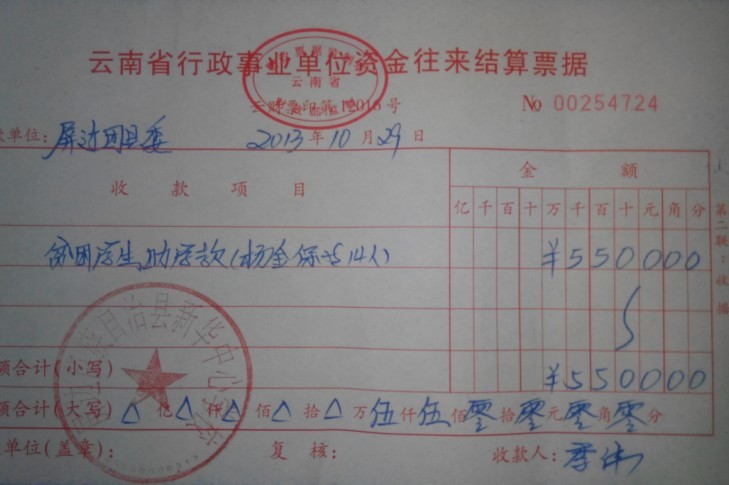 云南省行政事业单位资金往来结算票据
云南省
No 00254724
单位: 屏边团县委 2013年10月29日
收款项目
金额
亿千百十万千百十元角分
贫困学生助学款(杨金保等14人) ¥550000
额合计(小写) ¥550000
额合计(大写) 亿 仟 佰 拾 万伍仟伍佰零拾零元零角零分
单位(盖章): 复核: 收款人: 李伟
第二联:收据
自治县新华中心学校